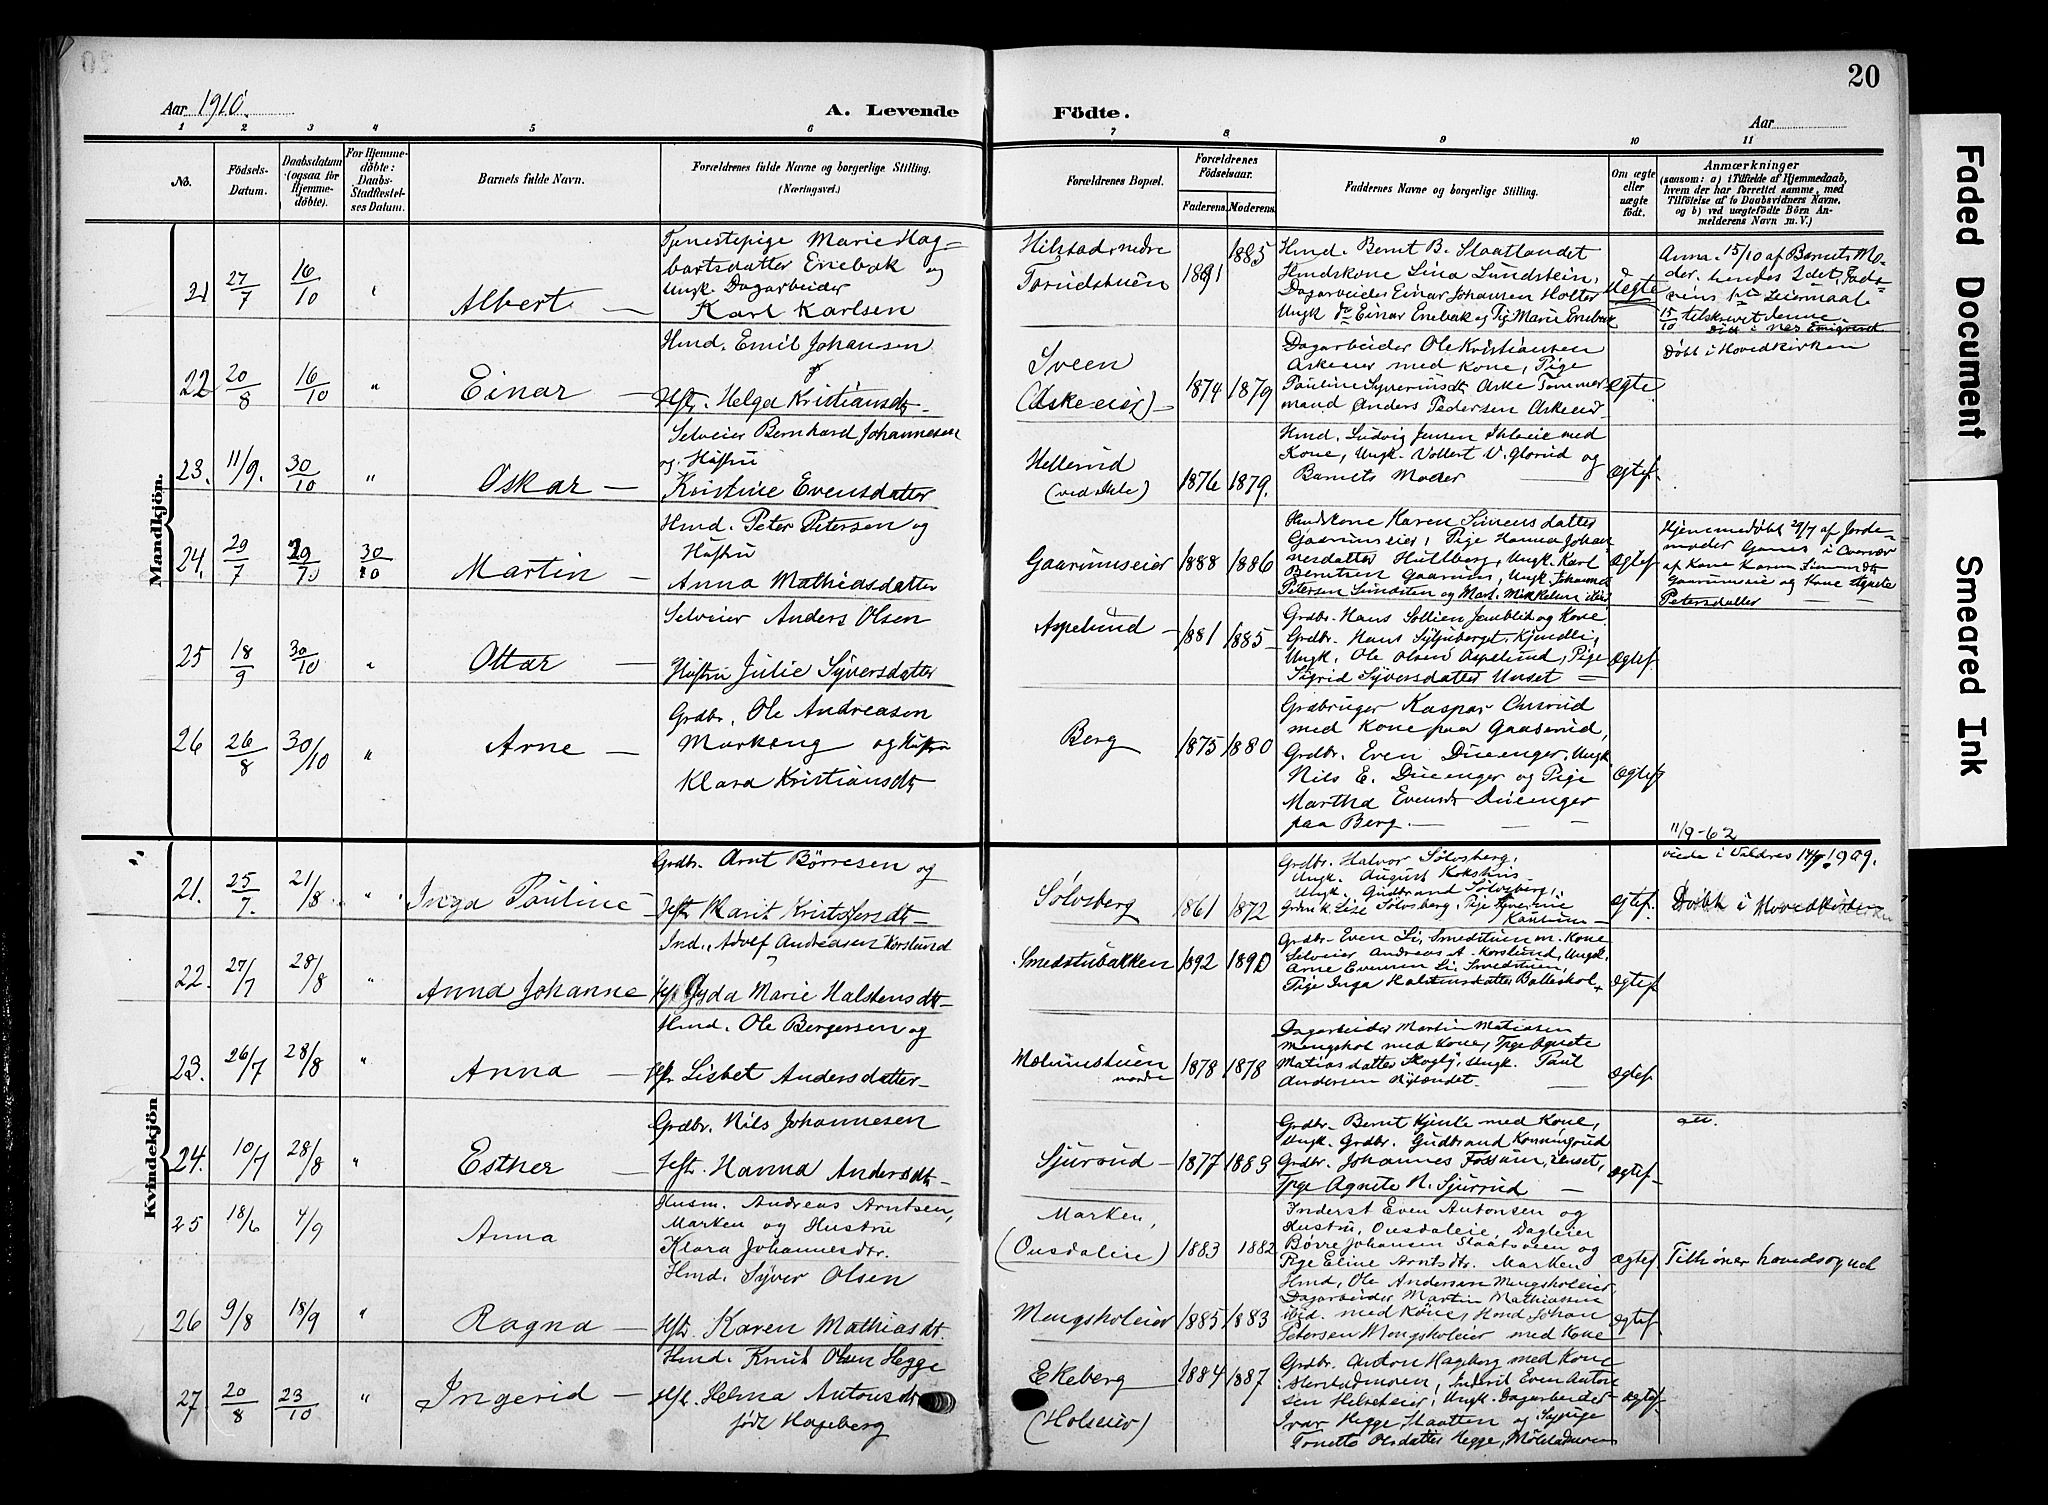 20
Aar 1910.
A. Levende Födte.
Aar
1 2 3 4 5 6 7 8 9 10 11
No.
Födsels-Datum.
Daabsdatum (ogsaa for Hjemme-döbte).
For Hjemme-döbte: Daabs-Stadfæstel-ses Datum.
Barnets fulde Navn.
Forældrenes fulde Navne og borgerlige Stilling. (Næringsvei.)
Forældrenes Bopæl.
Forældrenes Födselsaar.
Faderens. Moderens.
Faddernes Navne og borgerlige Stilling.
Om ægte eller uægte födt.
Anmærkninger
(saasom: a) i Tilfælde af Hjemmedaab, hvem der har forrettet samme, med Tilföielse af to Daabsvidners Navne, og b) ved uægtefödte Börn An-melderens Navn m. V.)
Mandkjön.
21 27/7 16/10 " Albert —
Tjenestepige Marie Hag-
bartsdatter Enebak og
Ungk. Dagarbeider
Karl Karlsen
Hilstad nedre
Torudstuen
1891 1885
Hmd. Bernt B. Staatlandet
Hmdskone Lina Lundstein,
Dagarbeider Einar Johansen Holter
Ungk do Einar Enebak og Pig Marie Enebak
Uegte
Anm. 15/10 af Barnets Mo-
der, hendes 2det, Fade-
rens 1ste Leiermaal
15/10 tilskrevet denne
22 20/8 16/10 " Einar —
Hmd. Emil Johansen
og
Hstr. Helga Kristiansdtr
Sveen
(Askeeier) —
1874 1879
Dagarbeider Ole Kristiansen
Askeeier med Kone, Pige
Pauline Syverinsdtr Aske Tømmer
mand Anders Pedersen Askeeid
ægte
Døbt i Hovedkirken
23. 11/9. 30/10 " Oskar —
Selveier Bernhard Johannesen
og Hustru
Kristine Evensdatter
Hellerud
(ved Skle)
1876 1879.
Hmd. Ludvig Jensen med
Kone, Ungk. Volbert V. Glorud og
Barnets Moder —
Ægtef.
24. 29/7 29/70 30/10 Martin —
Hmd. Peter Petersen og
Hustru
Anna Mathiasdatter
Gaarumseier
1888 1886
Hmdskone Karen Simensdatter
Gaarumseier, Pige Hanna Johan
nesdatter Hullberg, Ungk. Karl
Berntsen Gaarum, Ungk. Johannes
Petersen og Mart. Mikkelsen
Ægtef
Hjemmedøbt 29/7 af Jorde-
moder i Overvær
af Kone Karen Simensdtr
Gaarumseie og Kone Agnete
Petersdatter — —
25 18/9 30/10 " Ottar —
Selveier Anders Olsen
Hustru Julie Syversdatter
Aspelund —
1881 1885 —
Grdbr. Hans Sollien og Kone,
Grdbr. Hans Kjendlie,
Ungk. Ole Olsen Aspelund, Pige
Sigrid Syversdatter Unset —
Ægtef.
26 26/8 30/10 " Arne —
Grdbr. Ole Andreasen
Markeng og Hustru
Klara Kristiansdtr
Berg
1875 1880
Grdbruger Kaspar
med Kone paa Gaaserud,
Grdbr. Even Duenger, Ungk.
Nils E. Duenger og Pige
Martha Evensdtr Duenger
paa Berg. — — —
Ægtef
Kvindekjön
21. 25/7. 21/8 " Inga Pauline —
Grdbr. Arnt Børresen og
Hstr Marit Kristofersdtr
Sølvsberg
1861 1872
Grdbr. Halvor Sølvsberg,
Ungk. August
Ungk. Gudbrand Sølvsberg,
Grdmk Lise Sølvsberg, Pige
ægtef.
11/9-62
viede i Valdres 14/9 1909.
Døbt i Hovedkirken
22. 27/7 28/8 " Anna Johanne
Ind. Adolf Andreasen Korslund
Hstr Gyda Marie Halstensdtr —
Smedstubakken
1892 1890
Grdbr. Even Li, Smedstuen m. Kone
Selveier Andreas A. Korslund, Ungk.
Arne Evensen Li, Smedstuen,
Pige Inga Halstensdatter
Ægtef.
23. 26/7 28/8 " Anna —
Hmd. Ole Bergersen og
Hstr Lisbet Andersdatter —
Melumstuen
nordre
1878 1878
Dagarbeider Martin Matiasen
Mengshol med Kone, Tpge Agnete
Matiasdatter Skogly, Ungk. Paul
Andersen Nylændet. —
Ægtef.
24. 10/7 28/8 " Esther —
Grdbr. Nils Johannesen
Hstr. Hanna Andersdtr —
Sjurrud —
1877 1883
Grdbr. Bernt Kjente med Kone,
Ungk. Grdbr. Gudbrand Konningrud
Grdbr. Johannes Fossum, Unset,
Tpge Agnete N. Sjurrud —
Ægtef —
25 18/6 4/9 Anna
Husm. Andreas Arntsen,
Marken og Hustru
Klara Johannesdtr.
Marken,
(Ousdaleie)
1883 1882
Inderst Even Antonsen og
Hustru, Ousdaleie, Dagleier
Børre Johansen Staatsveen og
Pige Eline Arntsdtr. Marken
Ægtef
Tilhører hovedsognet
26 9/8 18/9 " Ragna —
Hmd. Syver Olsen
Hstr. Karen Mathiasdtr.
Mengsholeier
1885 1883
Hmd. Ole Andersen Mengsholeier,
Dagarbeider Martin Mathiassen
ibid. med Kone, Hmd Johan
Petersen Mengsholeier med Kone
ægtef.
27. 20/8 23/10 " Ingerid —
Hmd. Knut Olsen Hegge
Hstr. Helma Antonsdtr
født Hageberg
Ekeberg
(Holseier)
1884 1887
Grdbr. Anton Hageberg med Kone
Inderst Even Anton
sen Helseteier, Ungk. Dagarbeider
Ivar Hegge Staatten og Sypige
Tonette Olsdatter Hegge,
Ægtef.
Faded Document
Smeared Ink